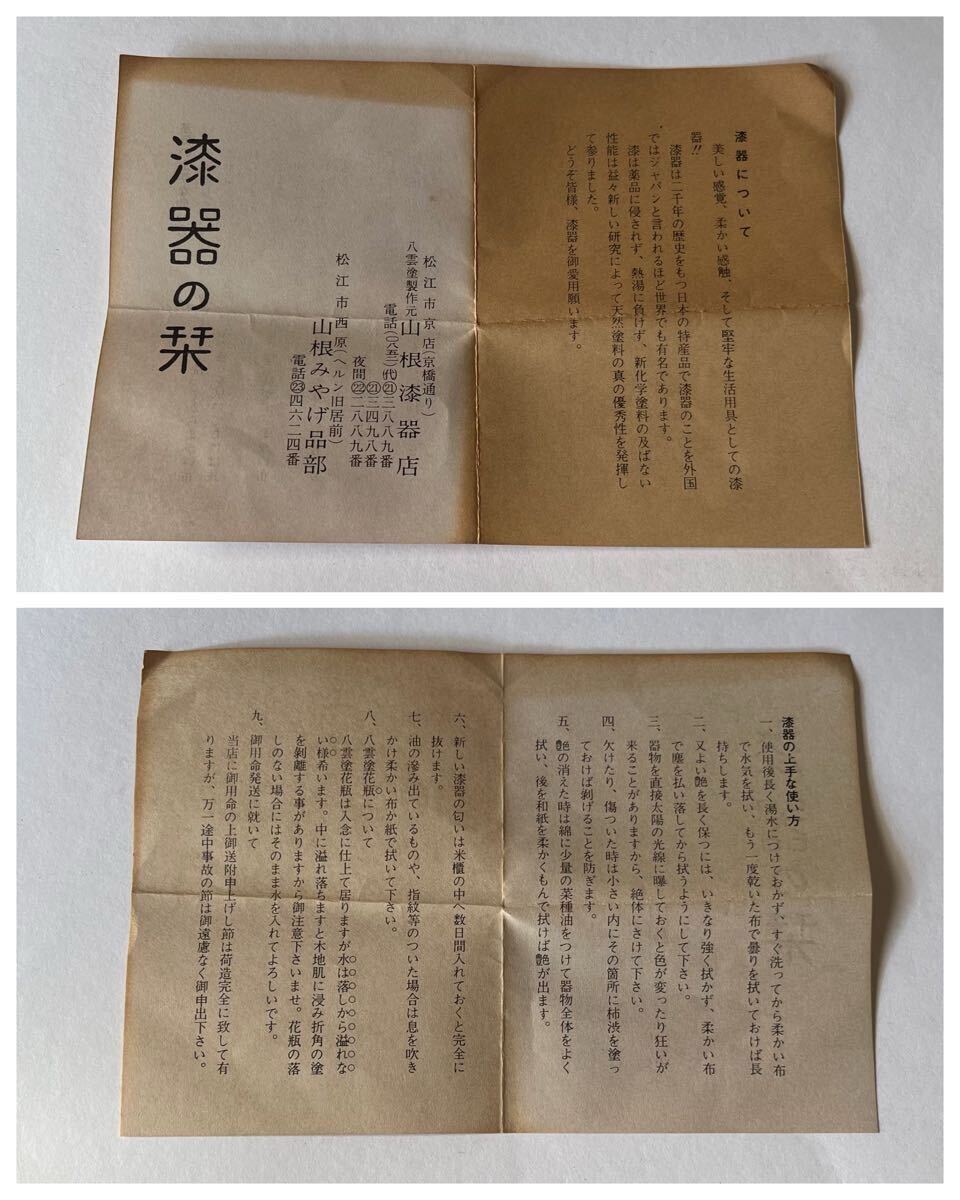 漆器について
美しい感覚、柔かい感触、そして堅牢な生活用具としての漆
器!!
漆器は二千年の歴史をもつ日本の特産品で漆器のことを外国
ではジャパンと言われるほど世界でも有名であります。
漆は薬品に侵されず、熱湯に負けず、新化学塗料の及ばない
性能は益々新しい研究によって天然塗料の真の優秀性を発揮し
て参りました。
どうぞ皆様、漆器を御愛用願います。
松江市京店(京橋通り)
八雲塗製作元 山根漆器店
電話(〇八五二)代㉑三八八九番
㉑三四九八番
夜間㉒二八八九番
松江市西原(ヘルン旧居前)
山根みやげ品部
電話㉓四六二四番
漆器の栞
漆器の上手な使い方
一、使用後長く湯水につけておかず、すぐ洗ってから柔かい布
で水気を拭い、もう一度乾いた布で曇りを拭いておけば長
持ちします。
二、又よい艶を長く保つには、いきなり強く拭かず、柔かい布
で塵を払い落してから拭うようにして下さい。
三、器物を直接太陽の光線に曝しておくと色が変ったり狂いが
来ることがありますから、絶体にさけて下さい。
四、欠けたり、傷ついた時は小さい内にその箇所に柿渋を塗っ
ておけば剥げることを防ぎます。
五、艶の消えた時は綿に少量の菜種油をつけて器物全体をよく
拭い、後を和紙を柔かくもんで拭けば艶が出ます。
六、新しい漆器の匂いは米櫃の中へ数日間入れておくと完全に
抜けます。
七、油の滲み出ているものや、指紋等のついた場合は息を吹き
かけ柔かい布か紙で拭いて下さい。
八、八雲塗花瓶について
八雲塗花瓶は入念に仕上て居りますが水は落しから溢れな
い様希います。中に溢れ落ちますと木地肌に浸み折角の塗
を剝離する事がありますから御注意下さいませ。花瓶の落
しのない場合にはそのまま水を入れてよろしいです。
九、御用命発送に就いて
当店に御用命の上御送附申上げし節は荷造完全に致して有
りますが、万一途中事故の節は御遠慮なく御申出下さい。